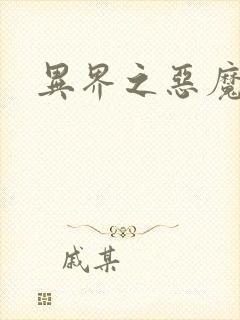 異界之惡魔
戚某